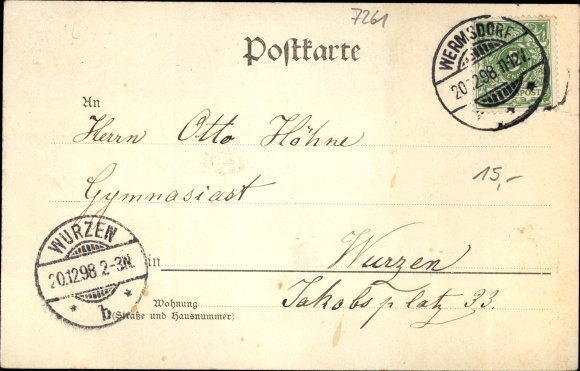 7261
Postkarte
WERMSDORF
20.12.98.11-12V.
An
Herrn Otto Höhne
15,-
Gymnasiast
WURZEN
20.12.98 2-3N.
b
in Wurzen
Wohnung
(Straße und Hausnummer)
Jakobsplatz 33.